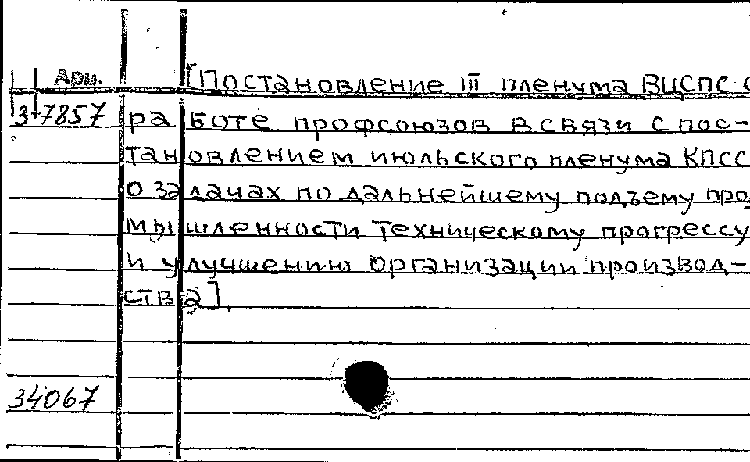 Арм.
[Постановление III пленума ВЦСПС о
3-7857 работе профсоюзов в связи с пос-
тановлением июльского пленума КПСС
о задачах по дальнейшему подъему про
мышленности техническому прогрессу
и улучшению организации производ-
ства].
34067